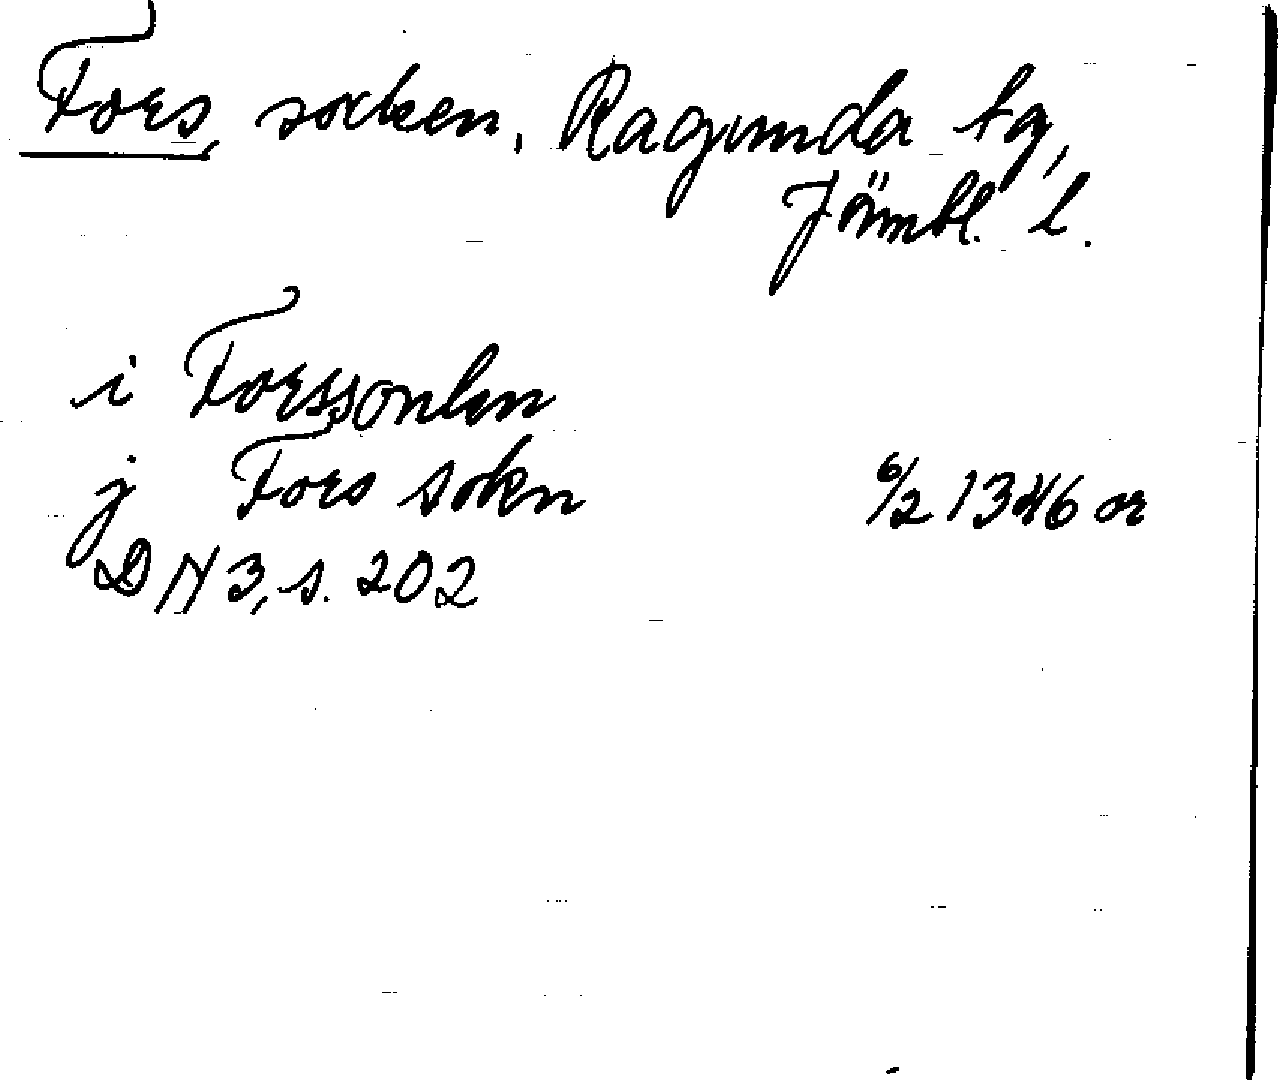 Fors, socken, Ragunda tg,
Jämtl. l.
i Forssonlen
j Fors sokn 6/2 1346 or
DN 3, s. 202